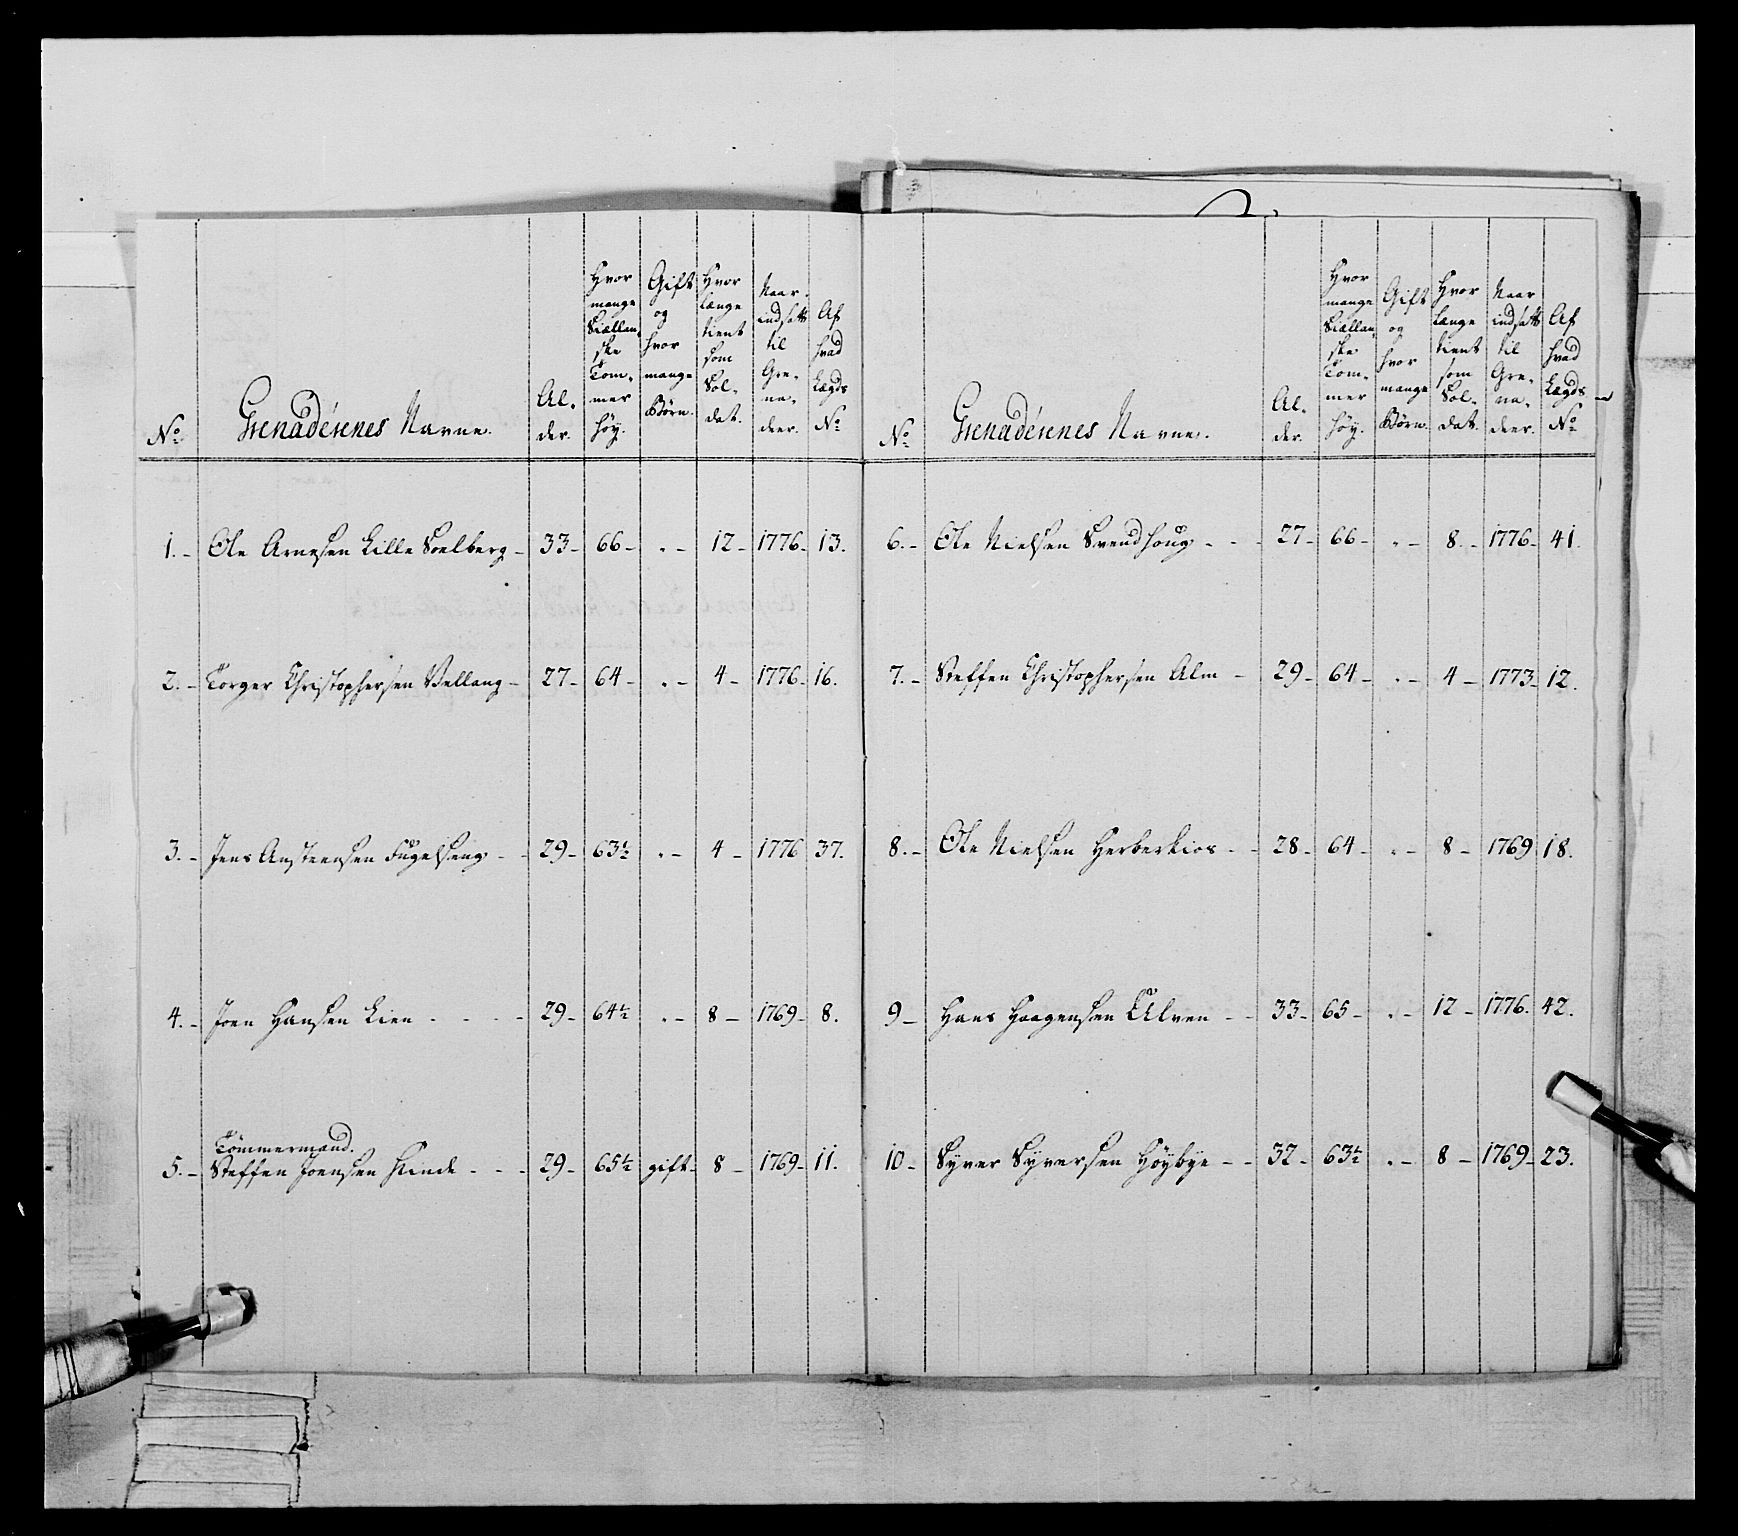 No
Grenaderenes Navne.
Al-
der.
Hvor
mange
Siællan-
ske
Tom-
mer
høy.
Gift
og
hvor
mange
Børn.
Hvor
længe
tient
som
Sol-
dat.
Naar
indsatt
til
Gre-
na-
deer.
Af
hvad
Lægds
No
1. - Ole Arnesen Lille Soelberg - 33 - 66 - . - 12 - 1776 - 13.
2. - Torger Christophersen Vellang - 27 - 64 - . - 4 - 1776 - 16.
3. - Jens Ansteensen Fugelseng - - 29 - 63½ . - 4 - 1776 37.
4. - Joen Hansen Lien - - - - 29 - 64½ . - 8 - 1769 - 8.
Tömmermand.
5. - Steffen Joensen Hunde - - - 29 - 65½ gift - 8 - 1769 - 11.
No
Grenaderenes Navne.
Al-
der.
Hvor
mange
Siællan-
ske
Tom-
mer
høy.
Gift
og
hvor
mange
Børn.
Hvor
længe
tient
som
Sol-
dat.
Naar
indsatt
til
Gre-
na-
deer.
Af
hvad
Lægds
No
6. - Ole Nielsen Svendhoug - - - 27 - 66 - . - 8. - 1776 - 41.
7. - Steffen Christophersen Alm - 29 - 64 - . - 4 - 1773 - 12.
8. - Ole Nielsen Herberkios - - 28 - 64 - . - 8 - 1769 18.
9 - Hans Haagensen Ulven - - 33 - 65 - . - 12 - 1776. 42.
10 - Syver Syversen Höybye - - 32 - 63½ . - 8 - 1769 - 23.